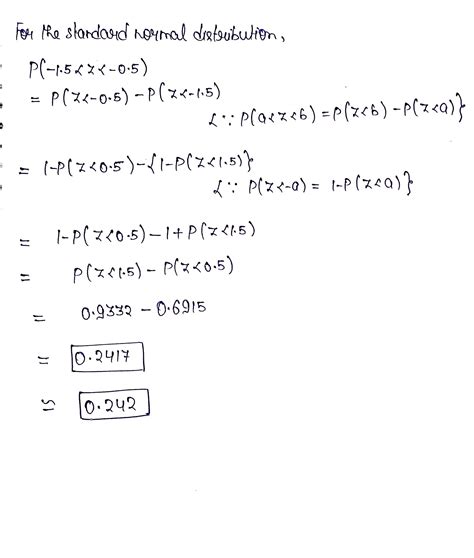 For the standard normal distribution,
P(-1.5<z<-0.5)
= P(z<-0.5) - P(z<-1.5)
{∵ P(a<z<b) = P(z<b) - P(z<a)}
= 1-P(z<0.5) - {1-P(z<1.5)}
{∵ P(z<-a) = 1-P(z<a)}
= 1-P(z<0.5) - 1 + P(z<1.5)
= P(z<1.5) - P(z<0.5)
= 0.9332 - 0.6915
= 0.2417
≃ 0.242